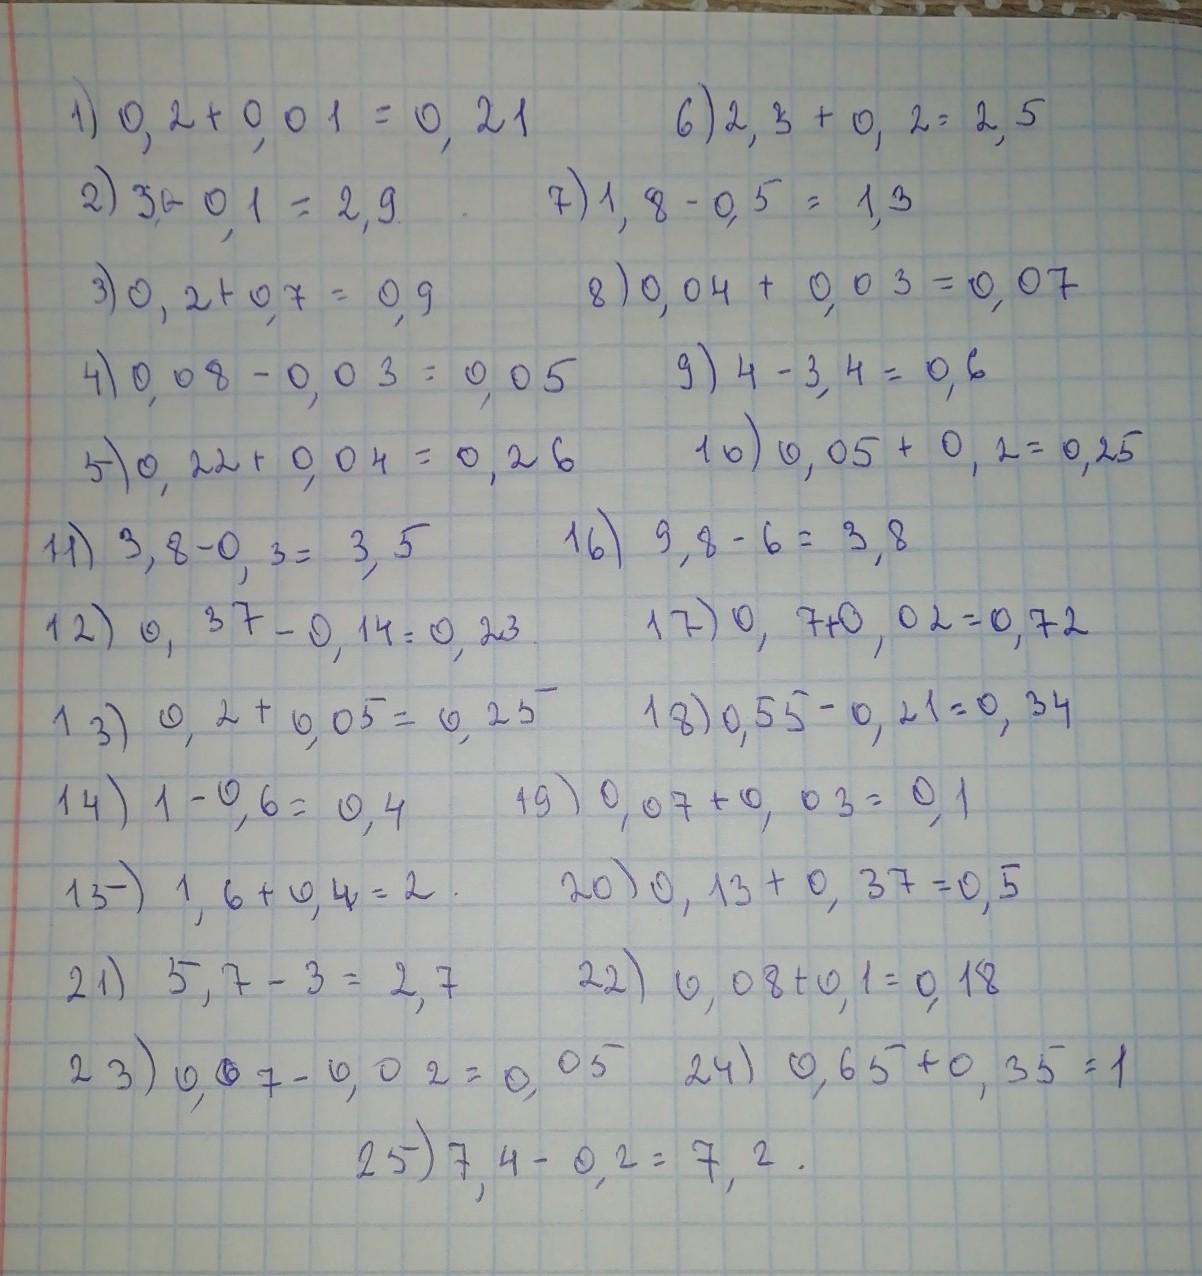 1) 0,2+0,01 = 0,21 6) 2,3 + 0,2 = 2,5
2) 3 - 0,1 = 2,9 7) 1,8 - 0,5 = 1,3
3) 0,2+0,7 = 0,9 8) 0,04 + 0,03 = 0,07
4) 0,08 - 0,03 = 0,05 9) 4 - 3,4 = 0,6
5) 0,22+0,04 = 0,26 10) 0,05 + 0,2 = 0,25
11) 3,8-0,3 = 3,5 16) 9,8 - 6 = 3,8
12) 0,37 - 0,14 = 0,23 17) 0,7+0,02 = 0,72
13) 0,2 + 0,05 = 0,25 18) 0,55 - 0,21 = 0,34
14) 1 - 0,6 = 0,4 19) 0,07 + 0,03 = 0,1
15) 1,6 + 0,4 = 2. 20) 0,13 + 0,37 = 0,5
21) 5,7 - 3 = 2,7 22) 0,08+0,1 = 0,18
23) 0,07 - 0,02 = 0,05 24) 0,65 + 0,35 = 1
25) 7,4 - 0,2 = 7,2.